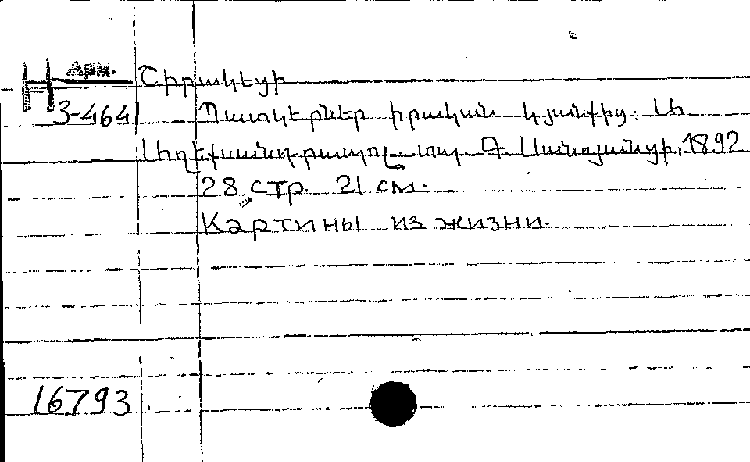 Н Арм.
3-464
Շիրակեցի
Պատկերներ իրական կյանքից: Ա
Ալեքսանդրապոլ. տպ. Գ. Սանոյանցի, 1892
28 стр. 21 см.
Картины из жизни.
16793